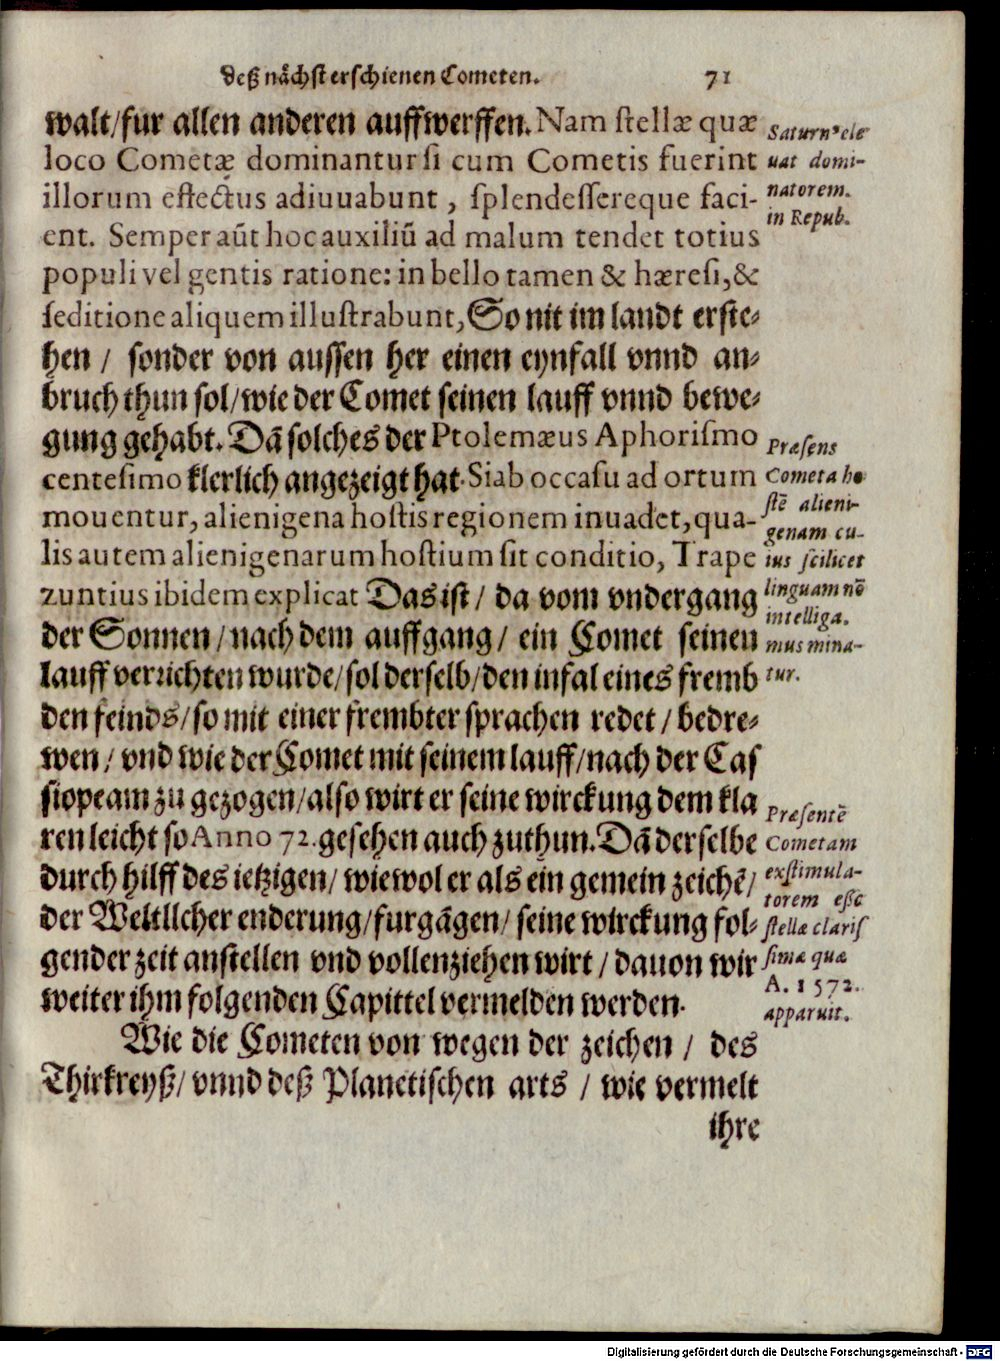 deß nåchst erschienen Cometen. 71
walt/fur allen anderen auffwerffen. Nam ſtellæ quæ
loco Cometæ dominantur ſi cum Cometis fuerint
illorum effectus adiuuabunt, ſplendeſſereque faci-
ent. Semper aūt hoc auxiliū ad malum tendet totius
populi vel gentis ratione: in bello tamen & hæreſi, &
ſeditione aliquem illuſtrabunt, So nit im landt erste-
hen / sonder von aussen her einen eynfall vnnd an-
bruch thun sol/wie der Comet seinen lauff vnnd bewe-
gung gehabt. Dā solches der Ptolemæus Aphoriſmo
centeſimo klerlich angezeigt hat. Si ab occaſu ad ortum
mouentur, alienigena hoſtis regionem inuadet, qua-
lis autem alienigenarum hoſtium ſit conditio, Trape
zuntius ibidem explicat Das ist / da vom vndergang
der Sonnen/nach dem auffgang/ ein Comet seinen
lauff verrichten wurde/sol derselb/den infal eines fremb
den feinds/so mit einer frembter sprachen redet / bedre-
wen / vnd wie der Comet mit seinem lauff/nach der Cas
siopeam zu gezogen/also wirt er seine wirckung dem kla
ren leicht so Anno 72. gesehen auch zuthun. Dā derselbe
durch hilff des ietzigen/ wiewol er als ein gemein zeichē/
der Weltlicher enderung/furgāgen/ seine wirckung fol-
gender zeit anstellen vnd vollenziehen wirt / dauon wir
weiter ihm folgenden Capittel vermelden werden.
Wie die Cometen von wegen der zeichen / des
Thirkreyß/ vnnd deß Planetischen arts / wie vermelt
ihre
Saturnꝰ ele
uat domi-
natorem.
in Repub.
Præſens
Cometa ho
ſtē alieni-
genam cu-
ius ſcilicet
linguam nō
intelliga-
mus mina-
tur.
Præſentē
Cometam
exſtimula-
torem eſſe
ſtellæ clariſ
ſimæ quæ
A. 1572.
apparuit.
Digitalisierung gefördert durch die Deutsche Forschungsgemeinschaft - DFG